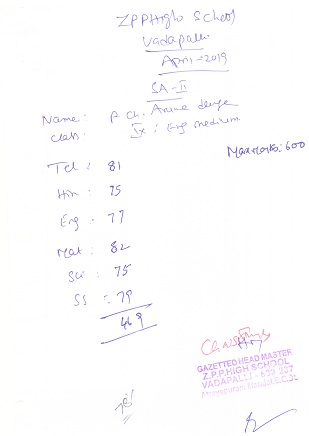 ZPPHigh School
Vadapalli
April-2019
SA-II
Name: P Ch.
Class: IX : Eng medium
Max marks: 600
Tel : 81
Hin : 75
Eng : 77
Mat : 82
Sci : 75
SS : 79
469
HM
GAZETTED HEAD MASTER
Z.P.P.HIGH SCHOOL
VADAPALLI - 533 237
Mandal E.G.Dt.
78%